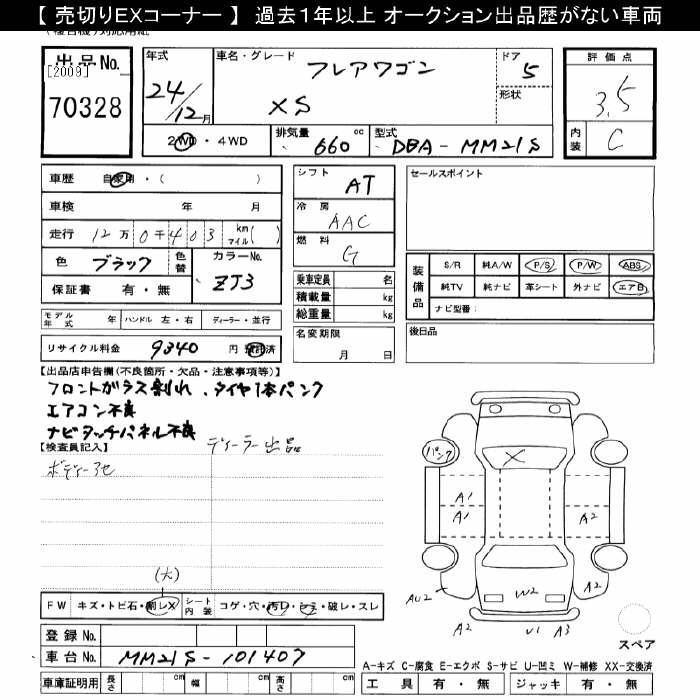 【 売切りEXコーナー 】 過去１年以上 オークション出品歴がない車両
出品No.
[2009]
70328
年式
24/12月
車名・グレード
フレアワゴン
XS
ドア
5
形状
評価点
3.5
内装
C
2WD・4WD
排気量
660 cc
型式
DBA - MM21S
車歴 自家用・( )
車検 年 月
走行 12万0千403 km マイル( )
色 ブラック 色替
カラーNo.
ZJ3
保証書 有・無
モデル年式 年 ハンドル 左・右 ディーラー・並行
リサイクル料金 9340 円 預託済
シフト
AT
冷房
AAC
燃料
G
乗車定員 名
積載量 kg
総重量 kg
名変期限
月 日
セールスポイント
装備品
S/R 純A/W P/S P/W ABS
純TV 純ナビ 革シート 外ナビ エアB
ナビ型番:
後日品
【出品店申告欄(不良箇所・欠品・注意事項等)】
フロントガラス割れ、タイヤ1本パンク
エアコン不良
ナビタッチパネル不良
【検査員記入】
ディーラー出品
ボディーアセ
(大)
FW キズ・トビ石・割レX
シート内装 コゲ・穴・汚レ・シミ・破レ・スレ
登録No.
車台No. MM21S-101407
車庫証明用 長さ cm 幅 cm 高さ cm
パンク
X
A1
A1
A2
AU2
W2
A2
A2
U1
A3
スペア
A-キズ C-腐食 E-エクボ S-サビ U-凹ミ W-補修 XX-交換済
工具 有・無 ジャッキ 有・無